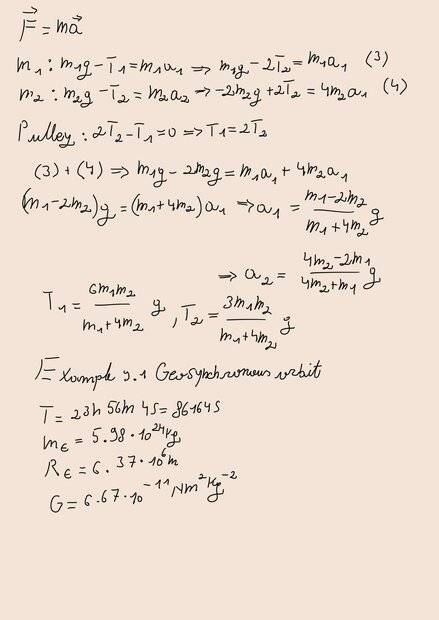 F⃗ = ma⃗
m₁ : m₁g - T₁ = m₁a₁ ⇒ m₁g - 2T₂ = m₁a₁ (3)
m₂ : m₂g - T₂ = m₂a₂ → -2m₂g + 2T₂ = 4m₂a₁ (4)
Pulley : 2T₂ - T₁ = 0 ⇒ T₁ = 2T₂
(3) + (4) ⇒ m₁g - 2m₂g = m₁a₁ + 4m₂a₁
(m₁ - 2m₂)g = (m₁ + 4m₂)a₁ ⇒ a₁ = (m₁ - 2m₂)/(m₁ + 4m₂) g
⇒ a₂ = (4m₂ - 2m₁)/(4m₂ + m₁) g
T₁ = 6m₁m₂/(m₁ + 4m₂) g , T₂ = 3m₁m₂/(m₁ + 4m₂) g
Example 9.1 Geosynchronous orbit
T = 23h 56m 4s = 86164s
mᴇ = 5.98 · 10²⁴ kg
Rᴇ = 6.37 · 10⁶ m
G = 6.67 · 10⁻¹¹ Nm² kg⁻²